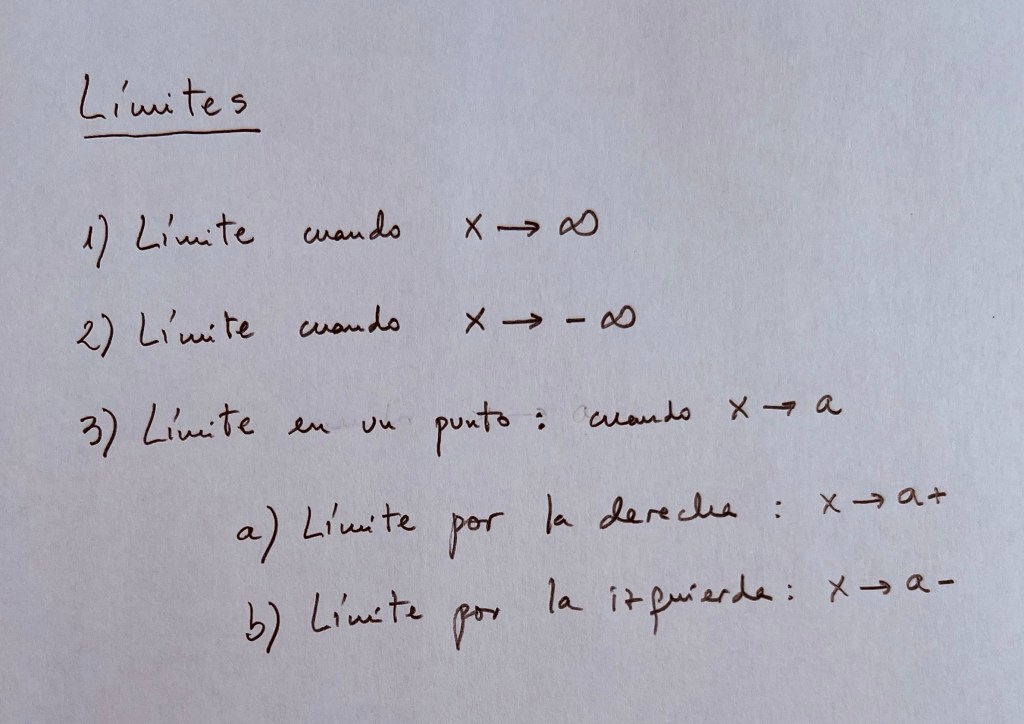 Límites
1) Límite cuando x → ∞
2) Límite cuando x → - ∞
3) Límite en un punto : cuando x → a
a) Límite por la derecha : x → a+
b) Límite por la izquierda : x → a-